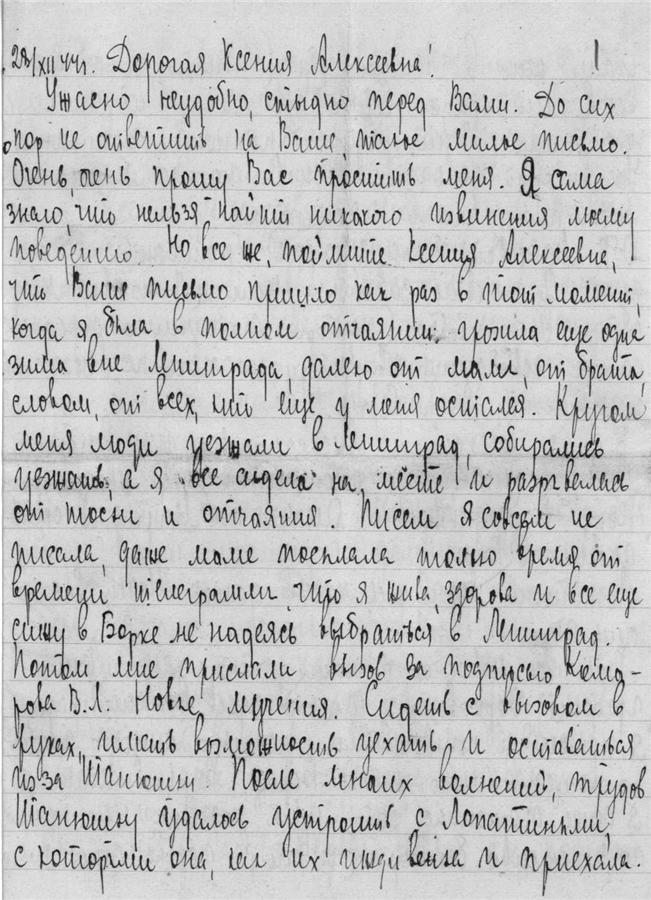 28/XII 44г. Дорогая Ксения Алексеевна! 1
Ужасно неудобно, стыдно перед Вами. До сих
пор не ответить на Ваше такое милое письмо.
Очень, очень прошу Вас простить меня. Я сама
знаю, что нельзя найти никакого извинения моему
поведению. Но все же, поймите Ксения Алексеевна,
что Ваше письмо пришло как раз в тот момент,
когда я была в полном отчаянии. грозила еще одна
зима вне Ленинграда, далеко от мамы, от брата,
словом, от всех, кто еще у меня остался. Кругом
меня люди уезжали в Ленинград, собирались
уезжать, а я все сидела на месте и разрывалась
от тоски и отчаяния. Писем я совсем не
писала, даже маме посылала только время от
времени телеграммы, что я жива, здорова и все еще
сижу в Борке не надеясь выбраться в Ленинград.
Потом мне прислали вызов за подписью Кома-
рова В.Л. Новые мучения. Сидеть с вызовом в
руках, иметь возможность уехать и оставаться
из за Танюшки. После многих волнений, трудов
Танюшку удалось устроить с Лопатиными,
с которыми она, как их иждивенка и приехала.